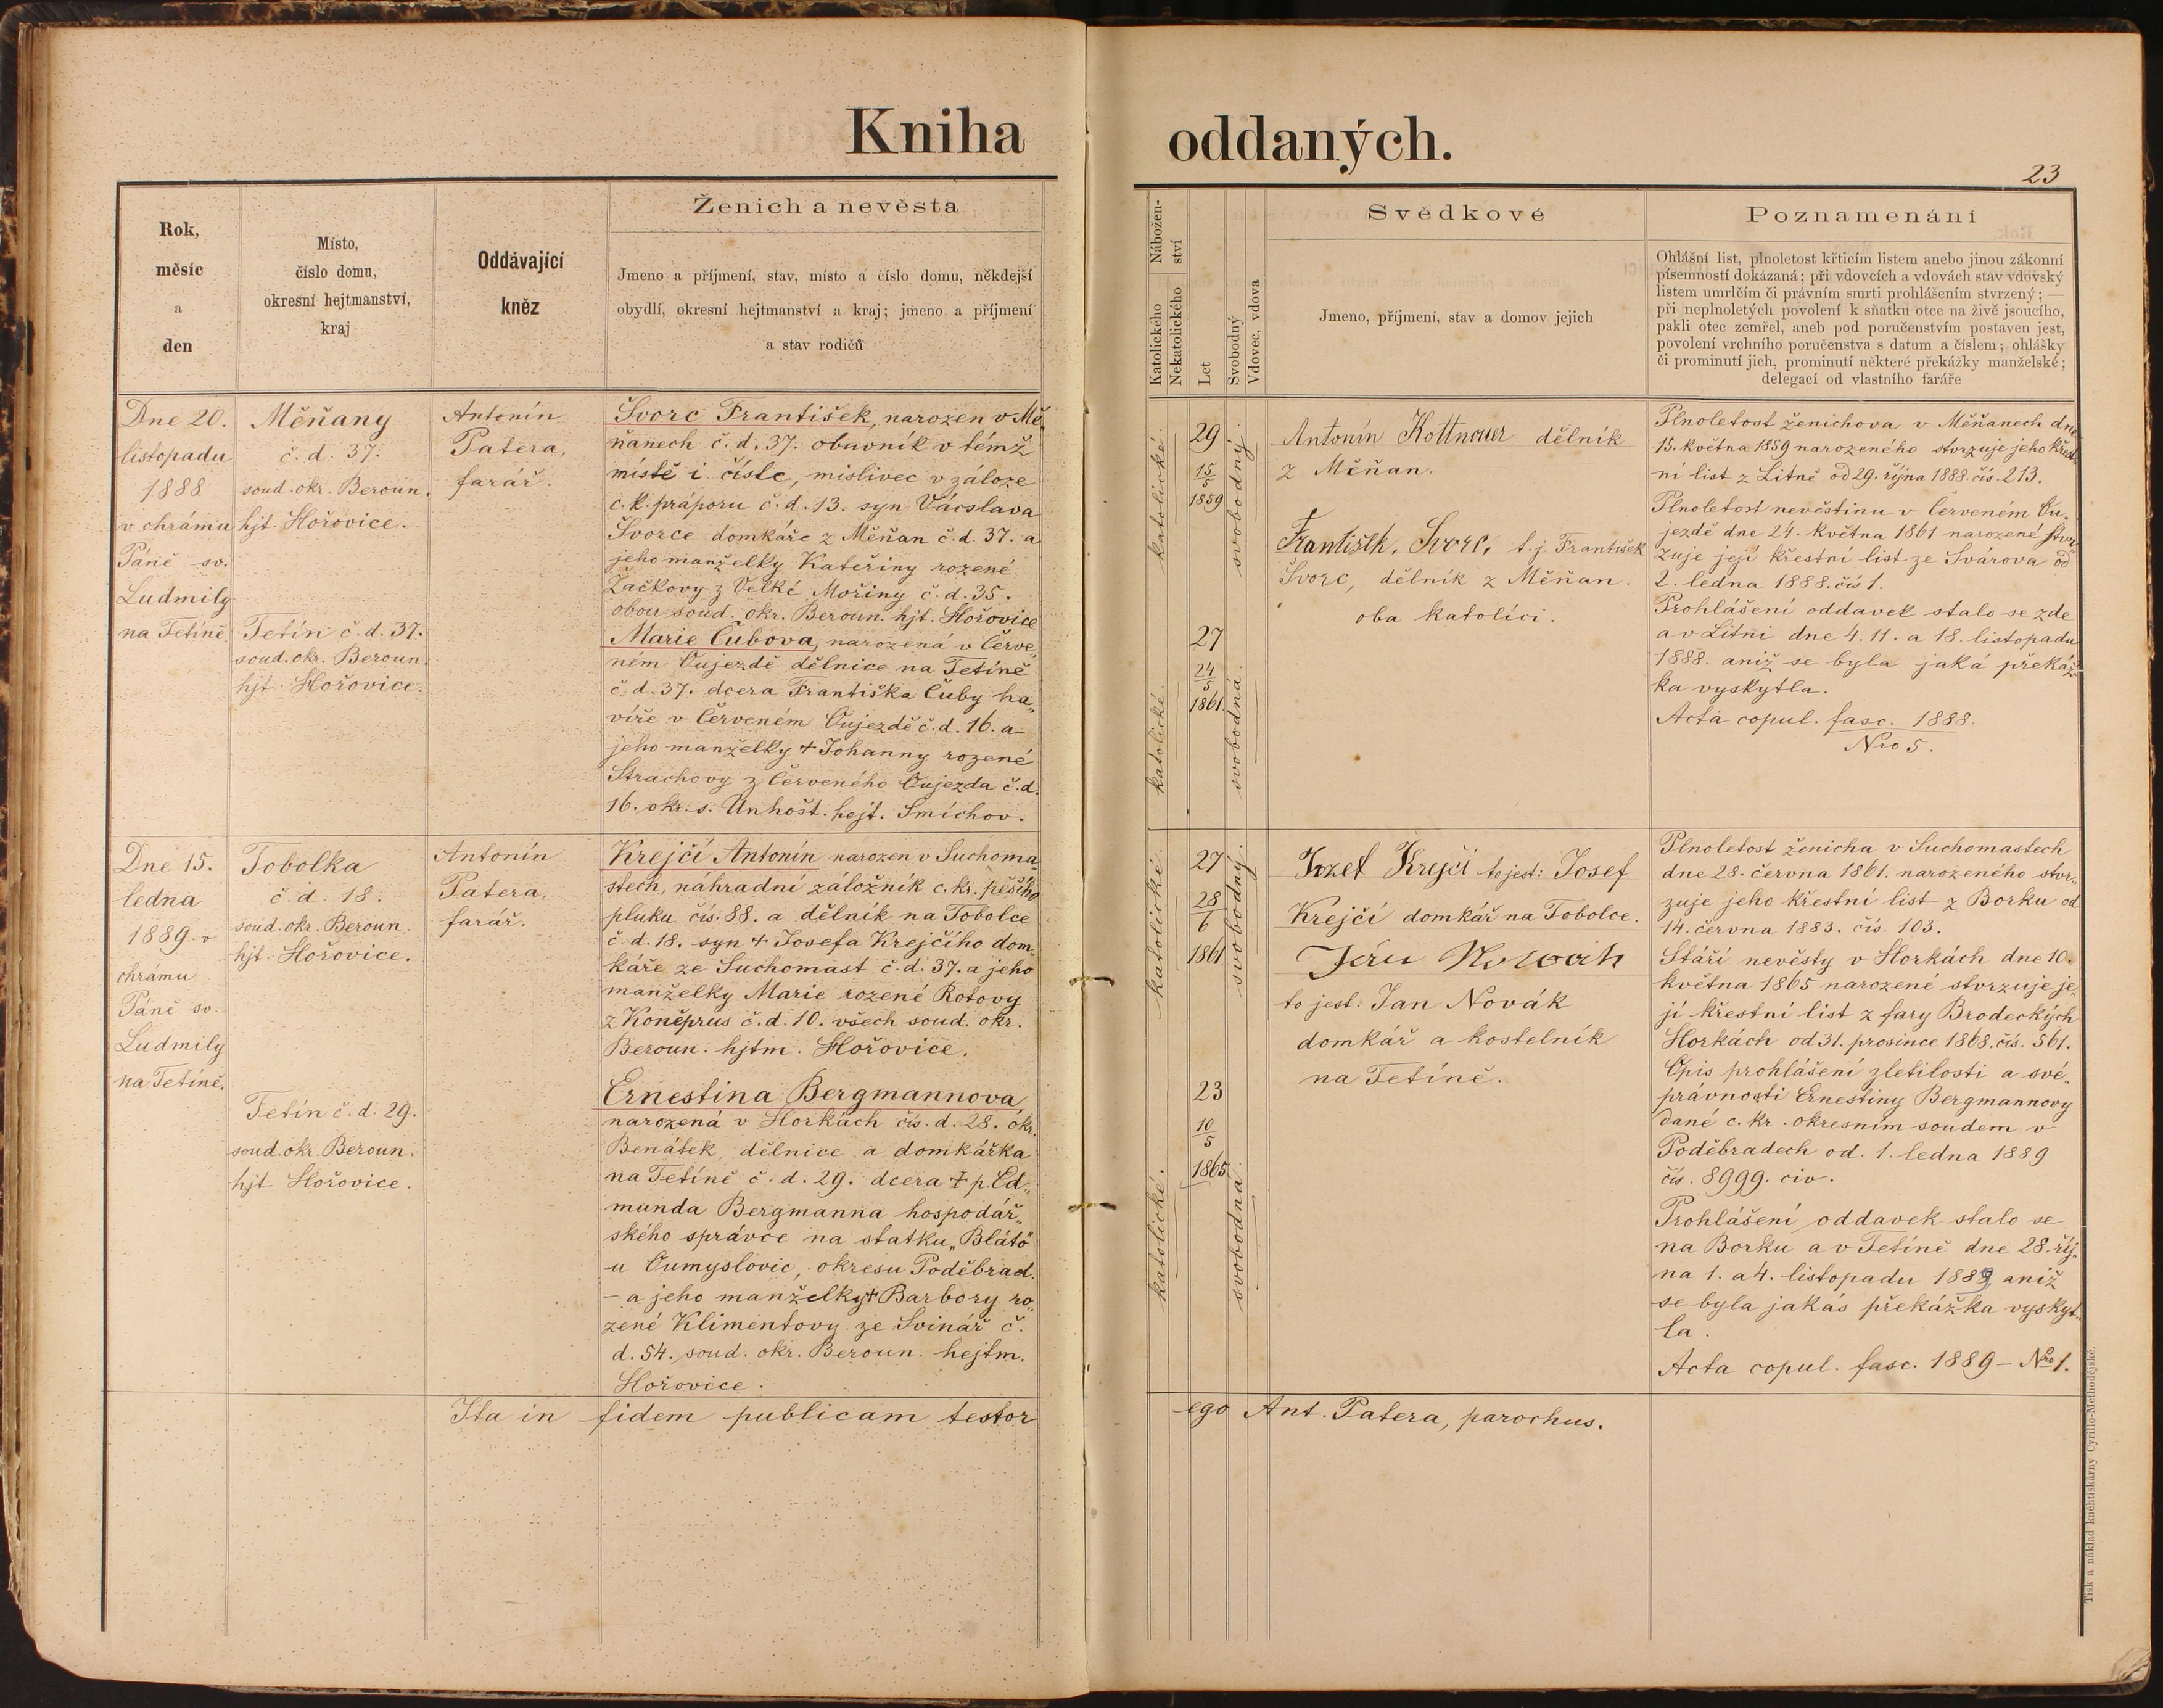 Kniha oddaných.
23
Rok,
měsíc
a
den
Místo,
číslo domu,
okresní hejtmanství,
kraj
Oddávající
kněz
Ženich a nevěsta
Jmeno a příjmení, stav, místo a číslo domu, někdejší
obydlí, okresní hejtmanství a kraj; jmeno a příjmení
a stav rodičů
Nábožen-
ství
Katolického
Nekatolického
Let
Svobodný
Vdovec, vdova
Svědkové
Jmeno, příjmení, stav a domov jejich
Poznamenání
Ohlášní list, plnoletost křticím listem anebo jinou zákonní
písemností dokázaná; při vdovcích a vdovách stav vdovský
listem umrlčím či právním smrti prohlášením stvrzený; —
při neplnoletých povolení k sňatku otce na živě jsoucího,
pakli otec zemřel, aneb pod poručenstvím postaven jest,
povolení vrchního poručenstva s datum a číslem; ohlášky
či prominutí jich, prominutí některé překážky manželské;
delegací od vlastního faráře
Dne 20.
listopadu
1888
v chrámu
Páně sv.
Ludmily
na Tetíně
Měňany
č. d. 37.
soud. okr. Beroun.
hjt. Hořovice.
Tetín č. d. 37.
soud. okr. Beroun.
hjt. Hořovice.
Antonín
Patera,
farář.
Švorc František, narozen v Mě„
ňanech č. d. 37. obuvník v témž
místě i čísle, mislivec v záloze
c. k. práporu č. d. 13. syn Vácslava
Švorce domkáře z Měňan č. d. 37. a
jeho manželky Kateřiny rozené
Žačkovy z Velké Mořiny č. d. 35.
obou soud. okr. Beroun. hjt. Hořovice
Marie Čubova, narozená v Črve„
ném Oujezdě dělnice na Tetíně
č. d. 37. dcera Františka Čuby ha„
víře v Červeném Oujezdě č. d. 16. a
jeho manželky + Johanny rozené
Strachovy z Červeného Oujezda č. d.
16. okr. s. Unhošt. hejt. Smíchov.
katolické.
29
15/5
1859
svobodný.
katolické.
27
24/5
1861.
svobodná.
Antonín Kottnouer dělník
z Měňan.
František. Svorc. t. j. František
Švorc, dělník z Měňan.
oba katolíci.
Plnoletost ženichova v Měňanech dne
15. května 1859 narozeného stvrzuje jeho křest„
ní list z Litně od 29. října 1888. čís. 213.
Plnoletost nevěstinu v Červeném Ou„
jezdě dne 24. května 1861 narozené stvr„
zuje její křestní list ze Svárova od
2. ledna 1888. čís 1.
Prohlášení oddavek stalo se zde
a v Litni dne 4. 11. a 18. listopadu
1888. aniž se byla jaká překáž„
ka vyskytla.
Acta copul. fasc. 1888.
Nro 5.
Dne 15.
ledna
1889. v
chrámu
Páně sv.
Ludmily
na Tetíně.
Tobolka
č. d. 18.
soud. okr. Beroun.
hjt. Hořovice.
Tetín č. d. 29.
soud. okr. Beroun.
hjt. Hořovice.
Antonín
Patera,
farář.
Krejčí Antonín narozen v Suchoma„
stech, náhradní záložník c. kr. pěšího
pluku čís. 88. a dělník na Tobolce
č. d. 18. syn + Josefa Krejčího dom„
káře ze Suchomast č. d. 37. a jeho
manželky Marie rozené Rotovy
z Koněprus č. d. 10. všech soud. okr.
Beroun. hjtm. Hořovice.
Ernestina Bergmannova
narozená v Horkách čís. d. 28. okr.
Benátek, dělnice a domkářka
na Tetíně č. d. 29. dcera + p. Ed„
munda Bergmanna hospodář„
ského správce na statku „Bláto"
u Oumyslovic, okresu Poděbrad.
– a jeho manželky + Barbory ro„
zené Klimentovy ze Svinář č.
d. 54. soud. okr. Beroun. hejtm.
Hořovice.
katolické.
27
28/6
1861
svobodný.
katolické.
23
10/5
1865
svobodná.
Jozef Krejči to jest: Josef
Krejčí domkář na Tobolce.
Ján Nowák
to jest: Jan Novák
domkář a kostelník
na Tetíně.
Plnoletost ženicha v Suchomastech
dne 28. června 1861. narozeného stvr„
zuje jeho křestní list z Borku od
14. června 1883. čís. 103.
Stáří nevěsty v Horkách dne 10.
května 1865 narozené stvrzuje je„
jí křestní list z fary Brodeckých
Horkách od 31. prosince 1868. čís. 561.
Opis prohlášení zletilosti a své„
právnosti Ernestiny Bergmannovy
dané c. kr. okresním soudem v
Poděbradech od. 1. ledna 1889
čís. 8999. civ.
Prohlášení oddavek stalo se
na Borku a v Tetíně dne 28. říj„
na 1. a 4. listopadu aniž
se byla jakás překážka vyskyt„
la.
Acta copul. fasc. 1889 – Nro 1.
Ita in fidem publicam testor ego Ant. Patera, parochus.
Tisk a náklad knihtiskárny Cyrillo-Methodějské.